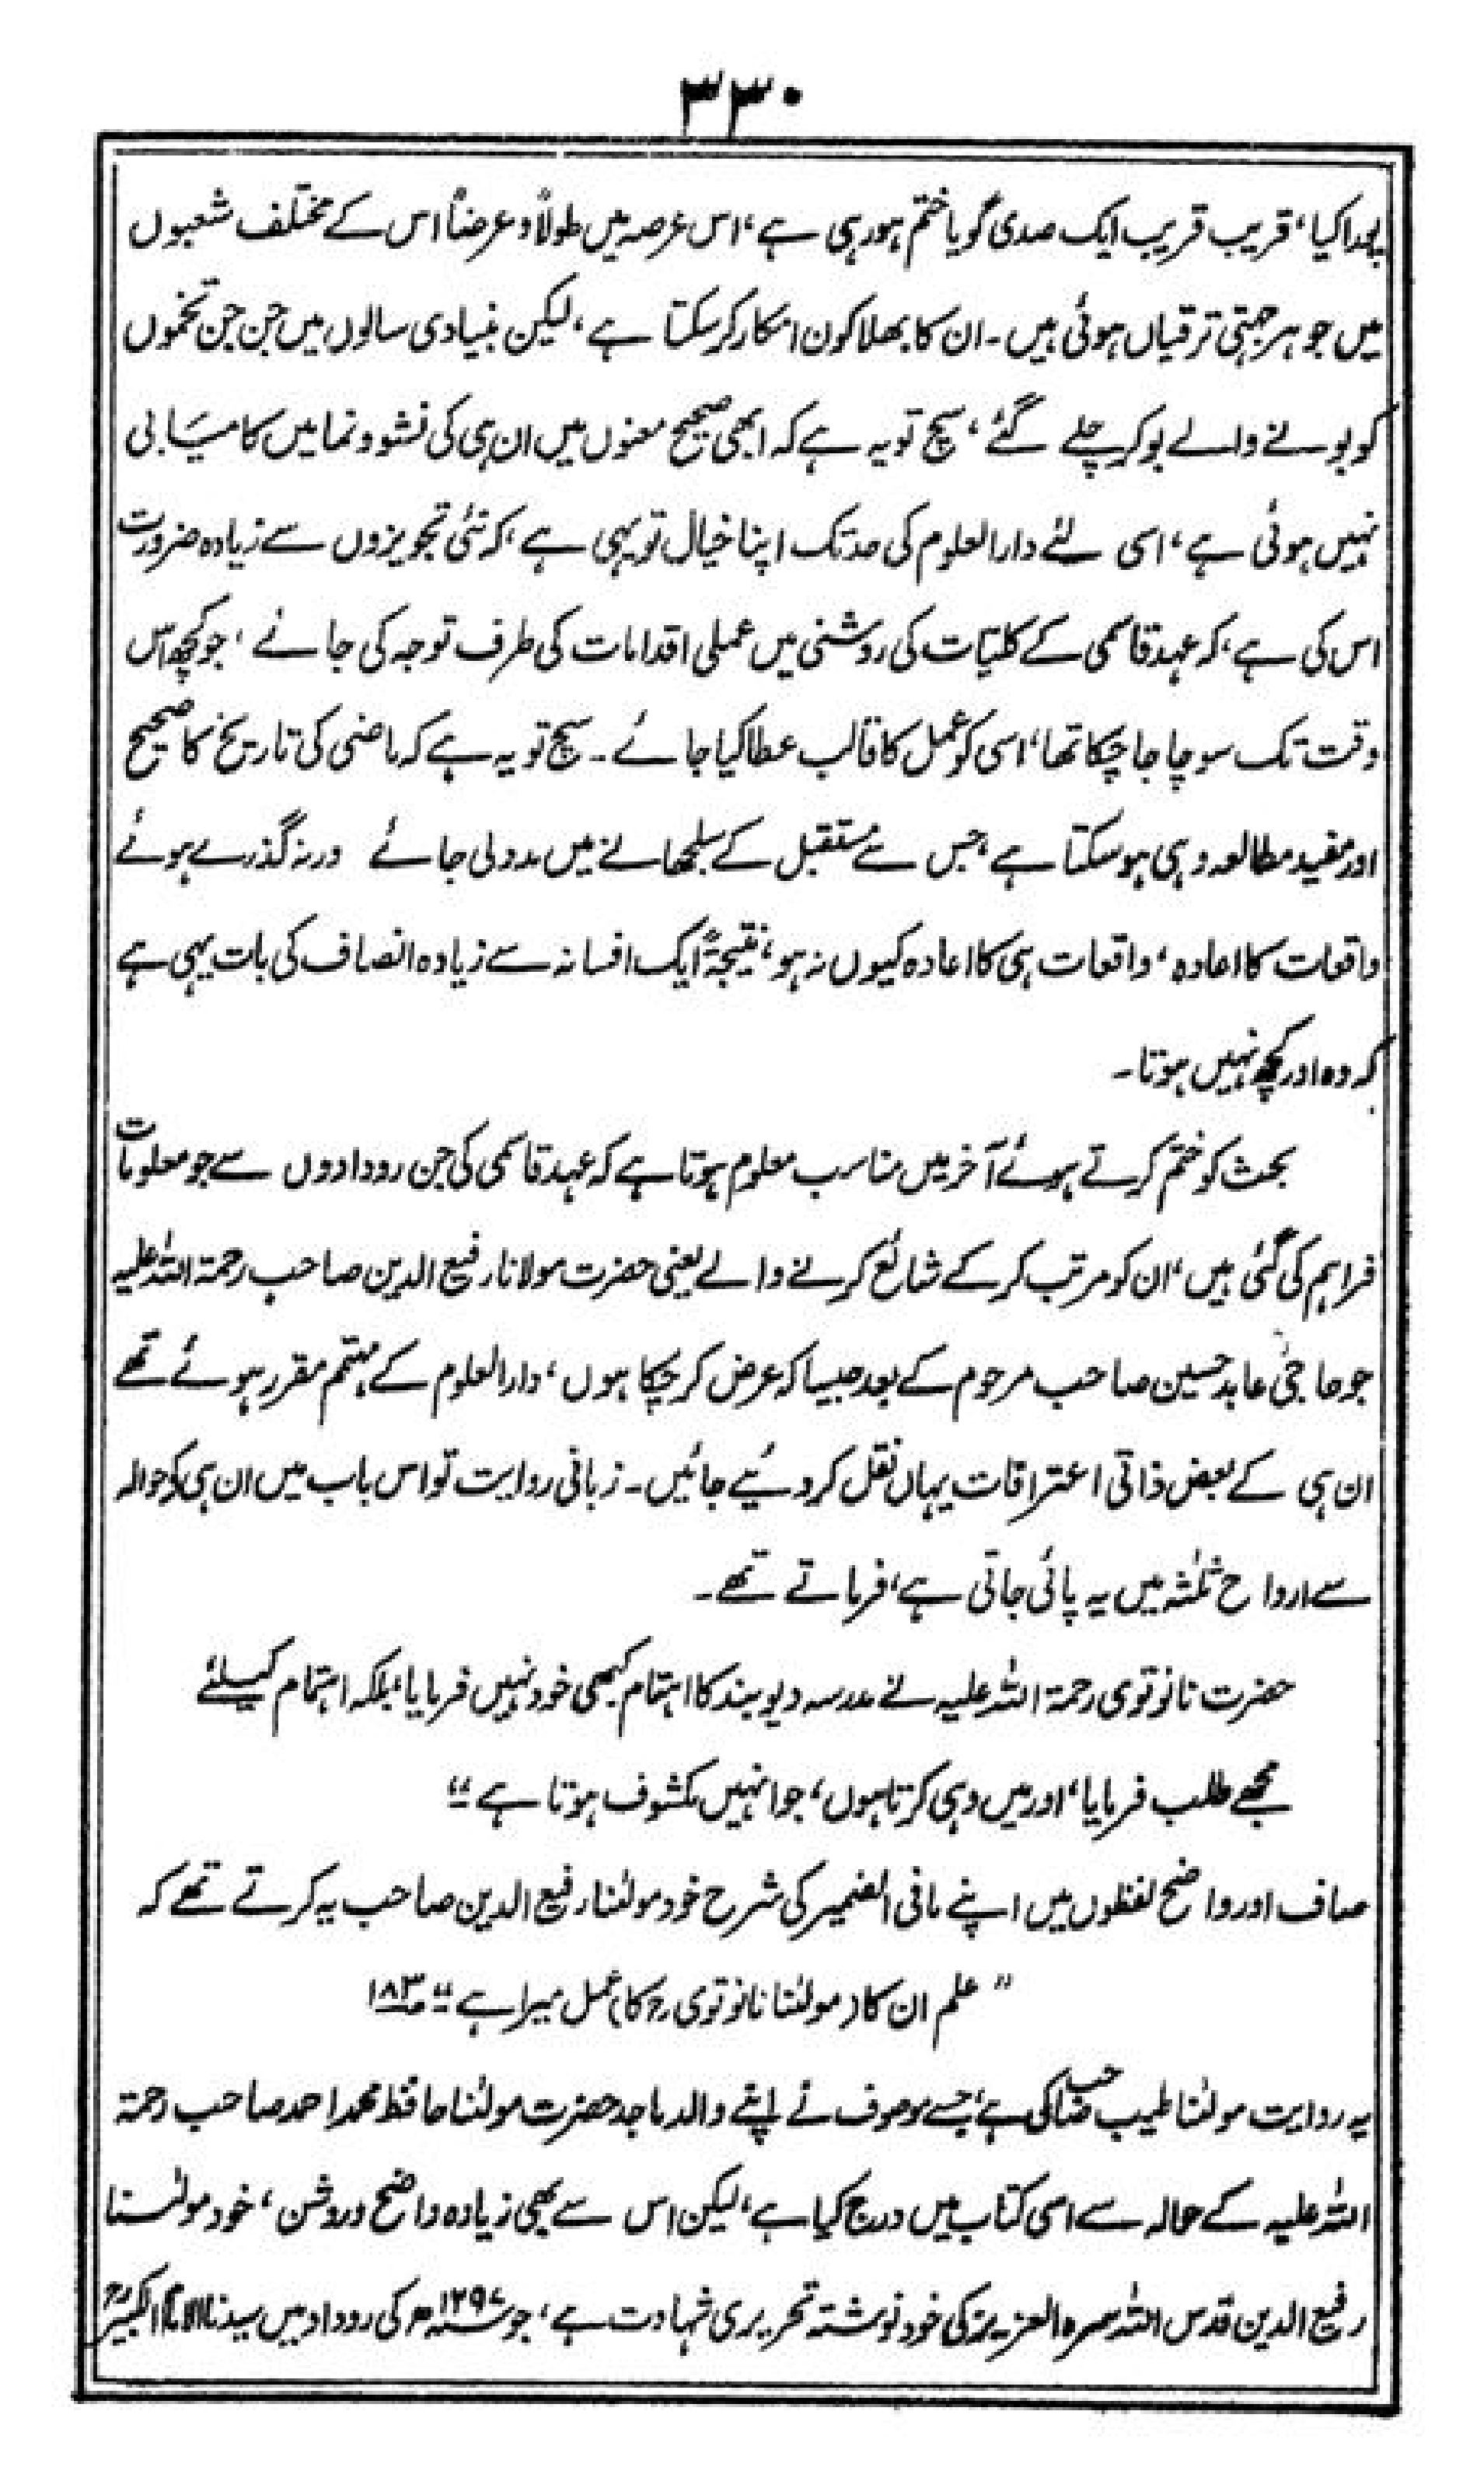 ۳۳۰
پورا کیا، قریب قریب ایک صدی گویا ختم ہو رہی ہے، اس عرصہ میں طولاً و عرضاً اس کے مختلف شعبوں
میں جو ہر جہتی ترقیاں ہوئی ہیں۔ ان کا بھلا کون انکار کر سکتا ہے، لیکن بنیادی سالوں میں جن جن تخموں
کو بونے والے بو کر چلے گئے، سچ تو یہ ہے کہ ابھی صحیح معنوں میں ان ہی کی نشو و نما میں کامیابی
نہیں ہوئی ہے، اسی لئے دارالعلوم کی حد تک اپنا خیال تو یہی ہے، کہ نئی تجویزوں سے زیادہ ضرورت
اس کی ہے، کہ عہد قاسمی کے کلیات کی روشنی میں عملی اقدامات کی طرف توجہ کی جائے، جو کچھ اس
وقت تک سوچا جا چکا تھا، اسی کو عمل کا قالب عطا کیا جائے۔ سچ تو یہ ہے کہ ماضی کی تاریخ کا صحیح
اور مفید مطالعہ وہی ہو سکتا ہے، جس سے مستقبل کے سلجھانے میں مدد لی جائے ورنہ گذرے ہوئے
واقعات کا اعادہ، واقعات ہی کا اعادہ کیوں نہ ہو، نتیجۃً ایک افسانہ سے زیادہ انصاف کی بات یہی ہے
کہ وہ اور کچھ نہیں ہوتا۔
بحث کو ختم کرتے ہوئے آخر میں مناسب معلوم ہوتا ہے کہ عہد قاسمی کی جن رودادوں سے جو معلومات
فراہم کی گئی ہیں، ان کو مرتب کر کے شائع کرنے والے یعنی حضرت مولانا رفیع الدین صاحب رحمۃ اللہ علیہ
جو حاجی عابد حسین صاحب مرحوم کے بعد جیسا کہ عرض کر چکا ہوں، دارالعلوم کے مہتمم مقرر ہوئے تھے
ان ہی کے بعض ذاتی اعترافات یہاں نقل کر دئیے جائیں۔ زبانی روایت تو اس باب میں ان ہی کے حوالہ
سے ارواح ثلٰثہ میں یہ پائی جاتی ہے، فرماتے تھے۔
حضرت نانوتوی رحمۃ اللہ علیہ نے مدرسہ دیوبند کا اہتمام کبھی خود نہیں فرمایا، بلکہ اہتمام کیلئے
مجھے طلب فرمایا، اور میں وہی کرتا ہوں، جو انہیں مکشوف ہوتا ہے۔“
صاف اور واضح لفظوں میں اپنے مافی الضمیر کی شرح خود مولٰنا رفیع الدین صاحب یہ کرتے تھے کہ
”علم ان کا (مولٰنا نانوتوی رح کا) عمل میرا ہے۔“ ص۱۸۳
یہ روایت مولٰنا طیب صاحب کی ہے، جسے موصوف نے اپنے والد ماجد حضرت مولٰنا حافظ محمد احمد صاحب رحمۃ
اللہ علیہ کے حوالہ سے اسی کتاب میں درج کیا ہے، لیکن اس سے بھی زیادہ واضح و روشن، خود مولٰنا
رفیع الدین قدس اللہ سرہ العزیز کی خود نوشتہ تحریری شہادت ہے، جو ۱۲۹۷ھ کی روداد میں سیدنا الامام الکبیر رح